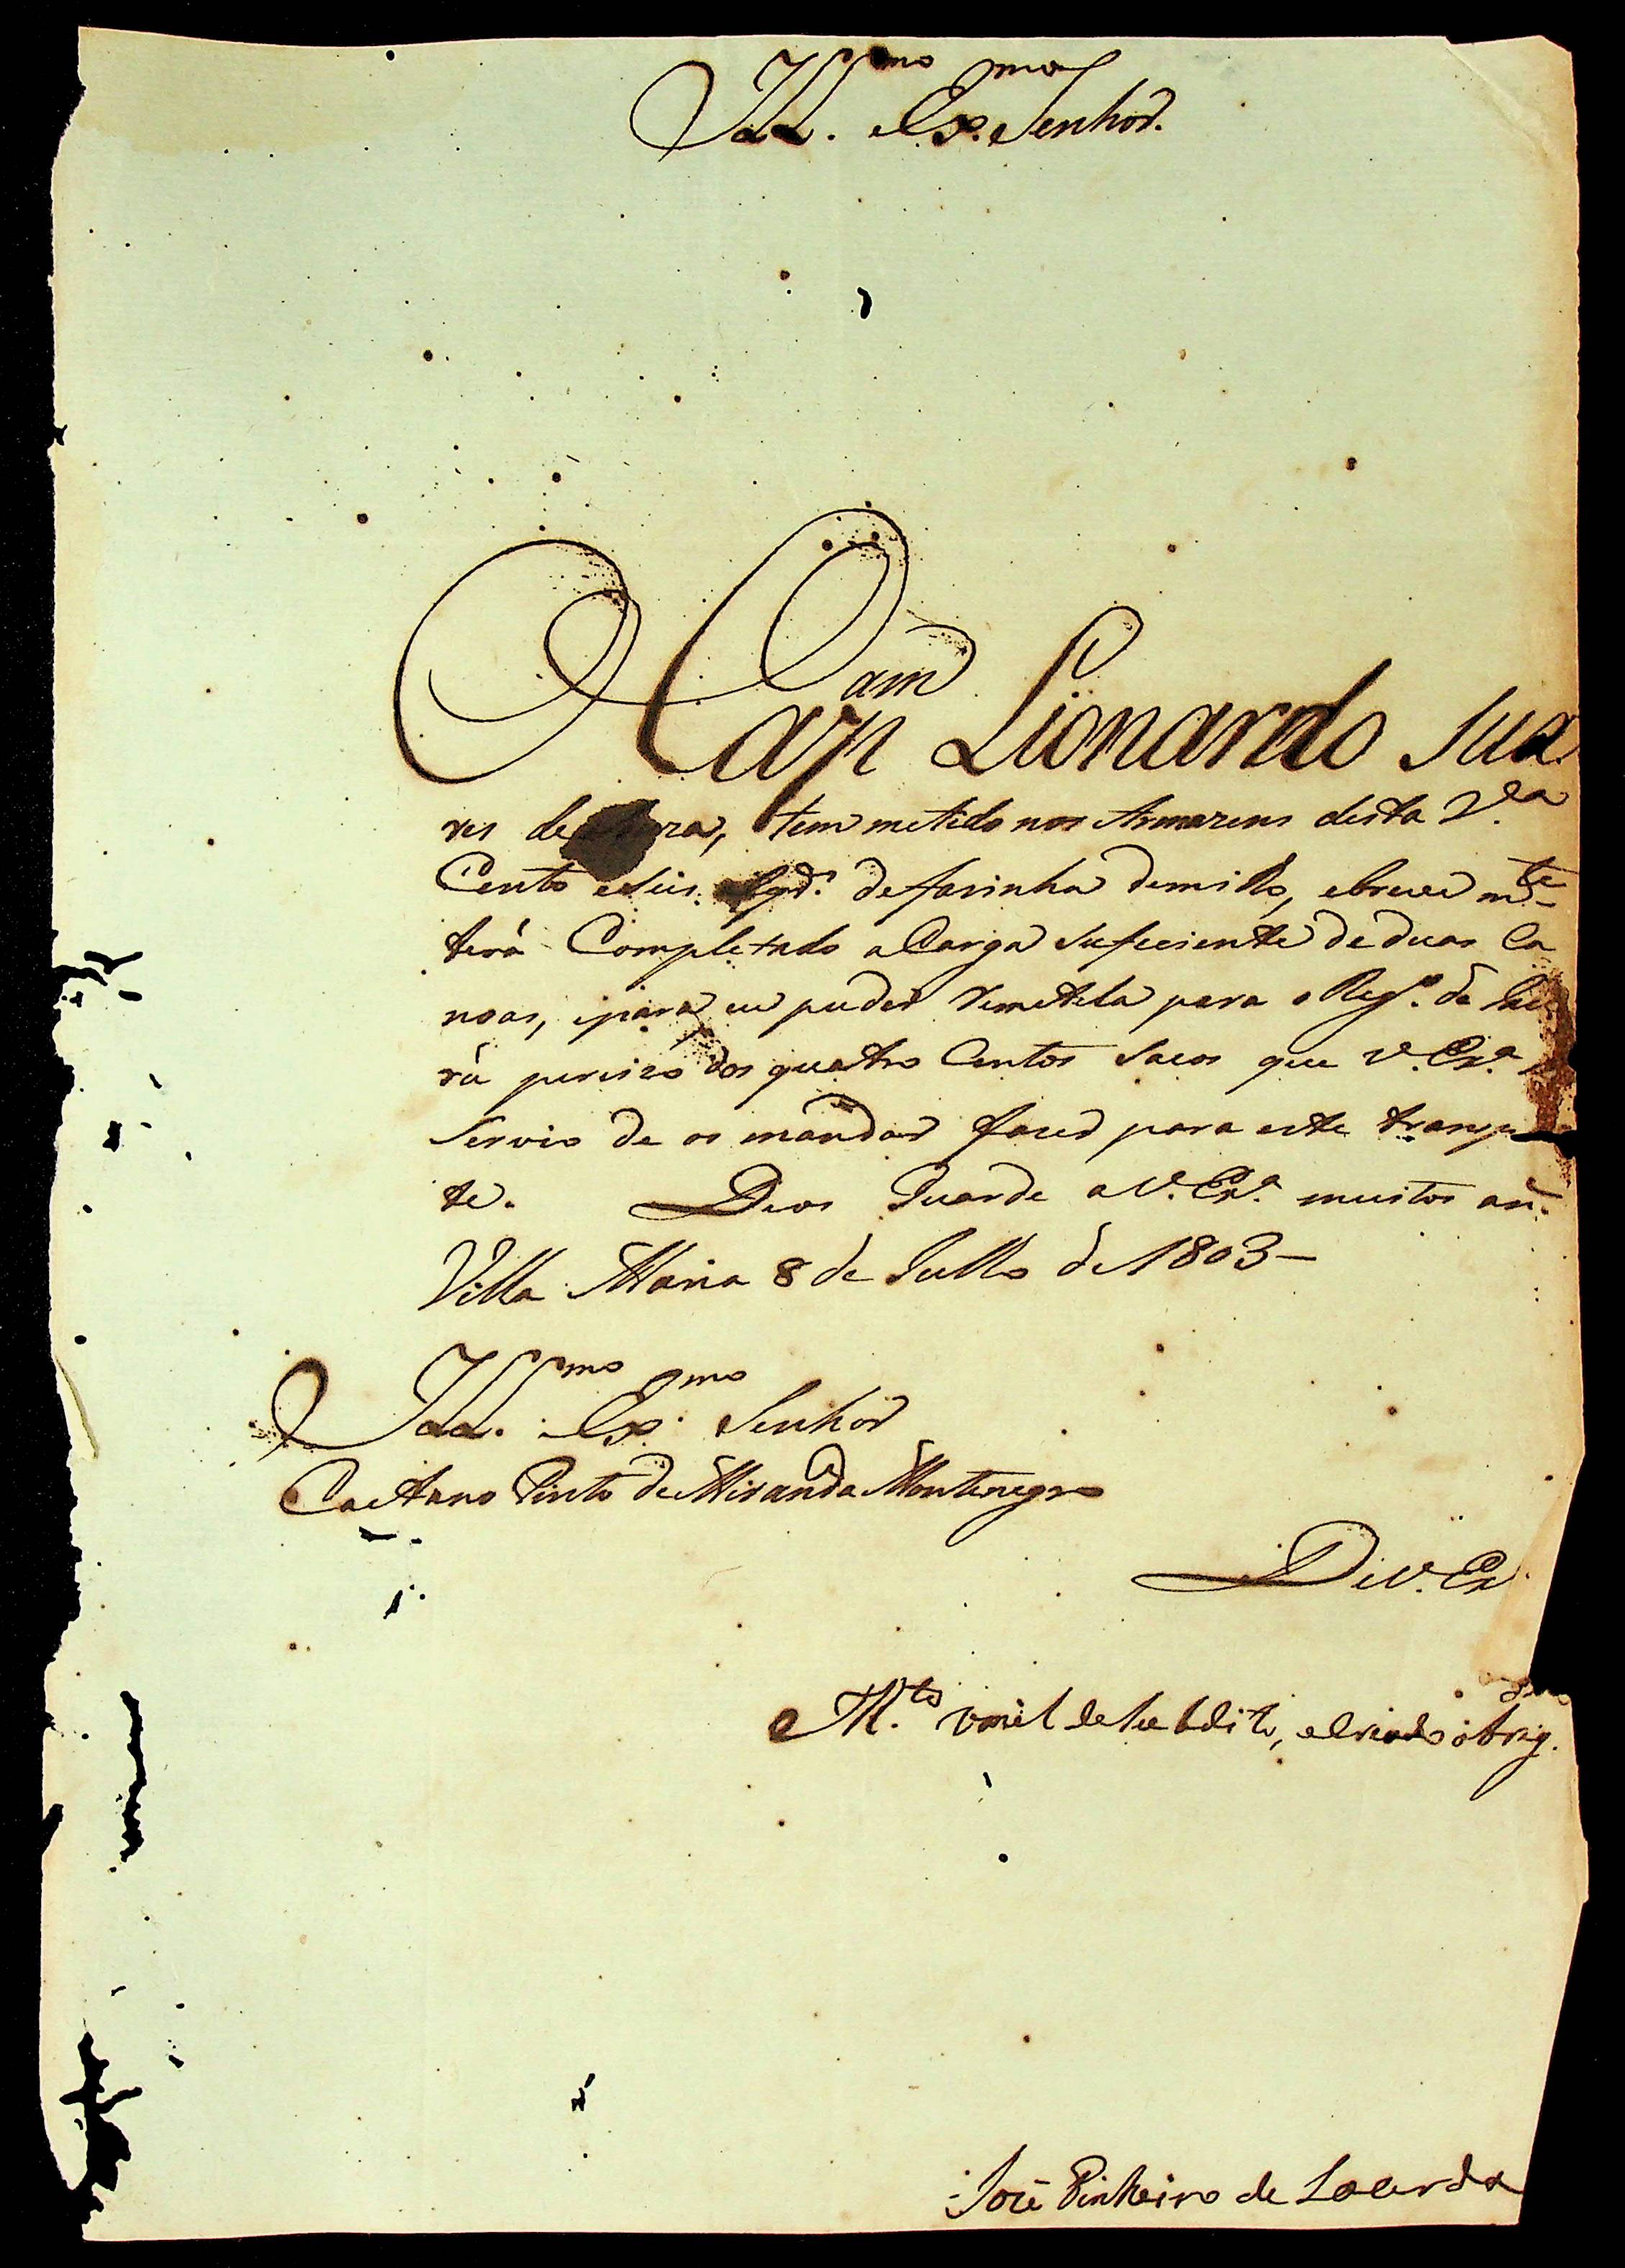 Ill.mo Ex.mo Senhor.
O Cap.am Lionardo Sua
res de ra, tem metido nos Armazens desta V.la
Cento e seis Alqd.s de farinha de milho, e breve m.te
terá Completado a Carga suficiente de duas Ca
noas, e para eu puder remetela para o Reg.o de
rá percizo dos quatro Centos sacos que V. Ex.a
servio de os mandar fazer para este transp
te. Deos Guarde a V. Ex.a muitos an.
Villa Maria 8 de Julho de 1803 –
Ill.mo Ex.mo Senhor
Caetano Pinto de Miranda Montenegro
De V. Ex
M.to umil de subdito, e criado obrig.
José Pinheiro de Lacerda